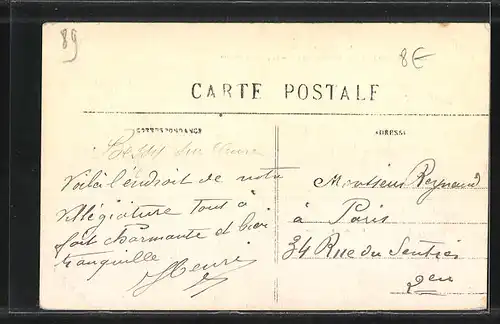 89
8€
CARTE POSTALE
CORRESPONDANCE
ADRESSE
Bessy sur Cure
Voilà l'endroit de notre
villégiature tout à
fait charmante et bien
tranquille
Henri
Monsieur Reynaud
à Paris
34 Rue du Sentier
2eu